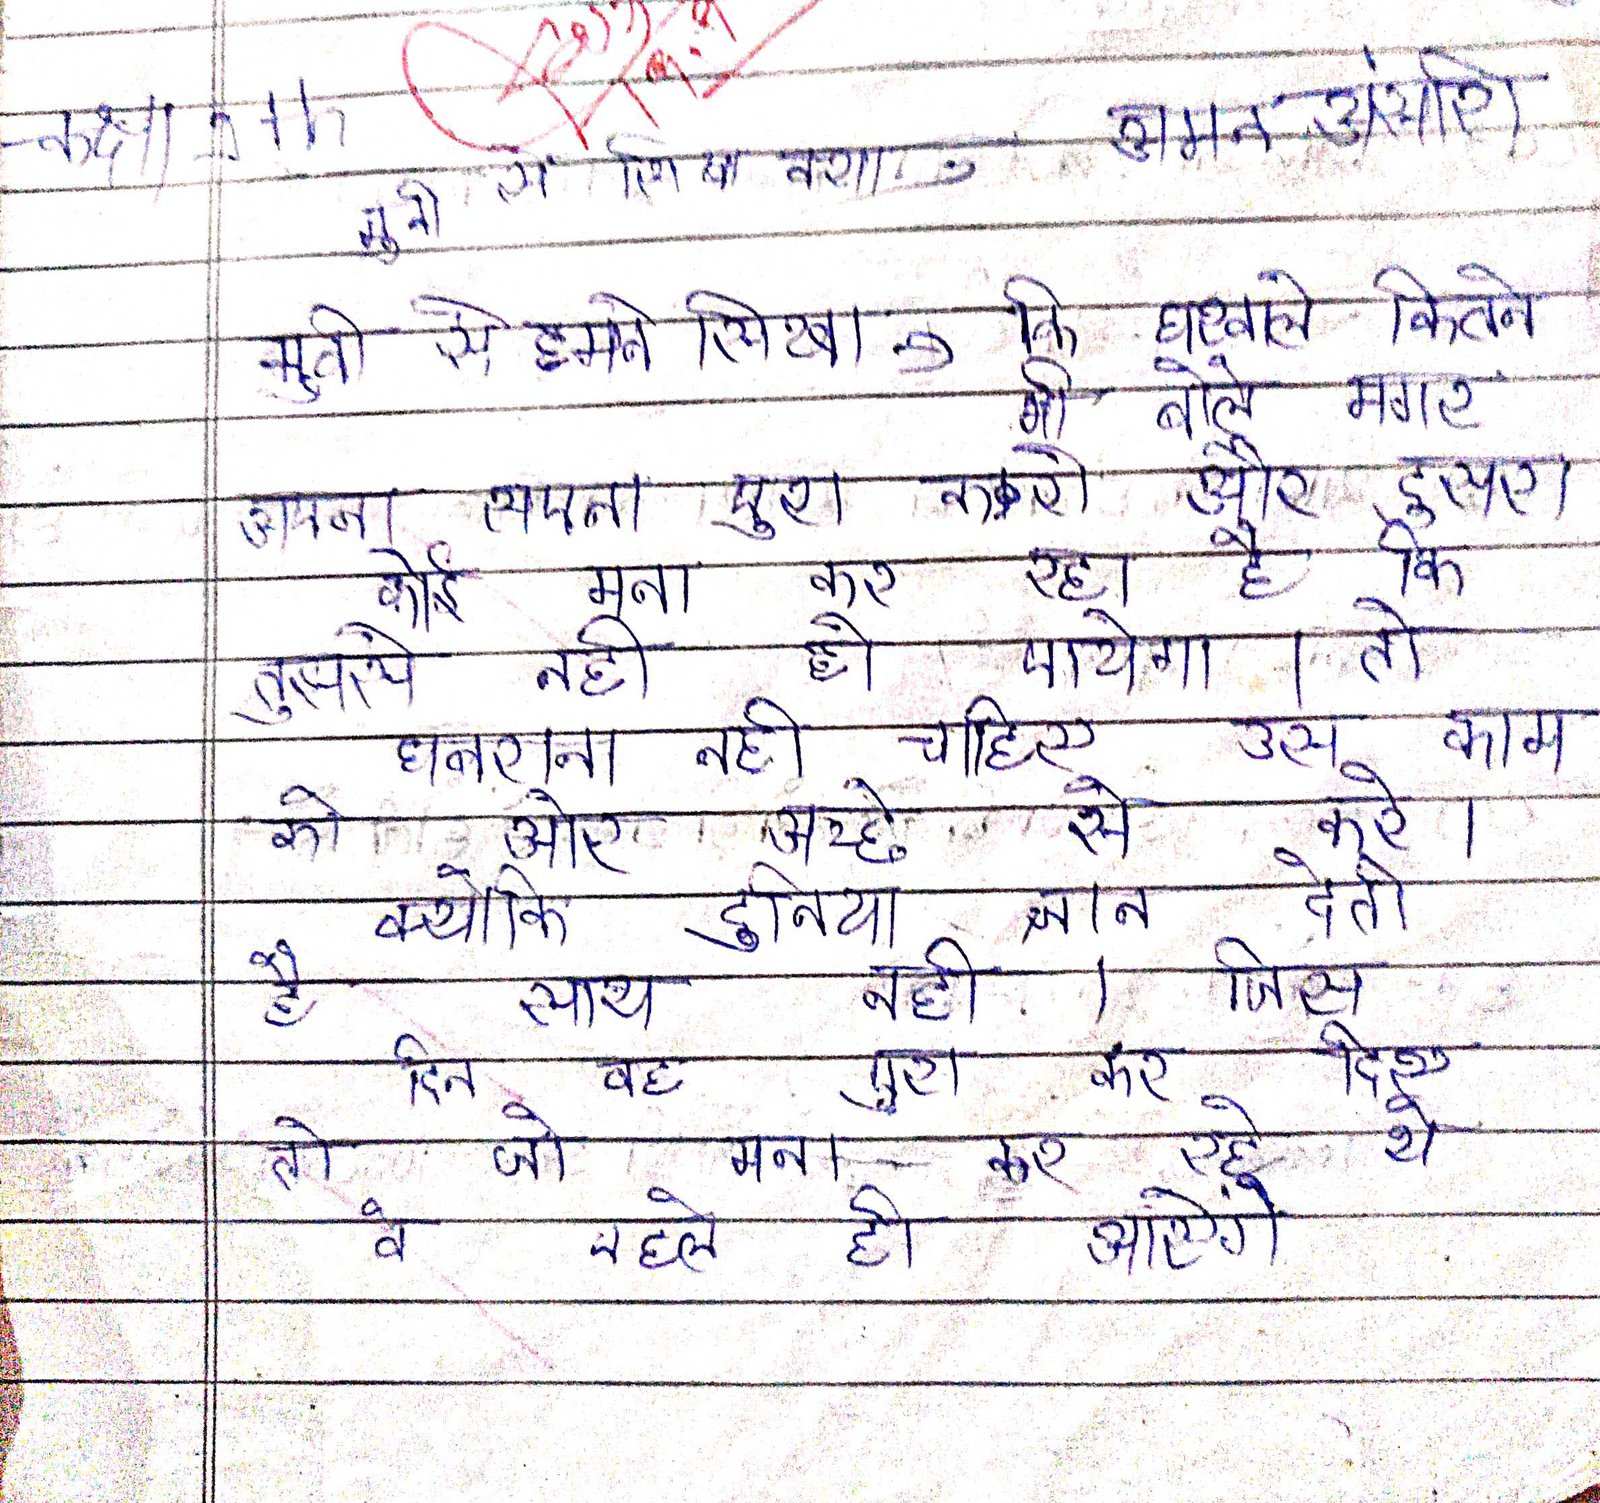 कक्षा
अमन अंसारी
से
मुनी से हमने सिखा कि घरवाले कितने
भी बोले मगर
अपना सपना पुरा करो और दुसरा
कोई मना कर रहा है कि
तुमसे नही हो पायेगा । तो
घबराना नही चाहिए उस काम
को और अच्छे से करे ।
क्योकि दुनिया ज्ञान देती
है साथ नही । जिस
दिन वह पुरा कर दिए
तो जो मना कर रहे थे
वे पहले ही आएंगे